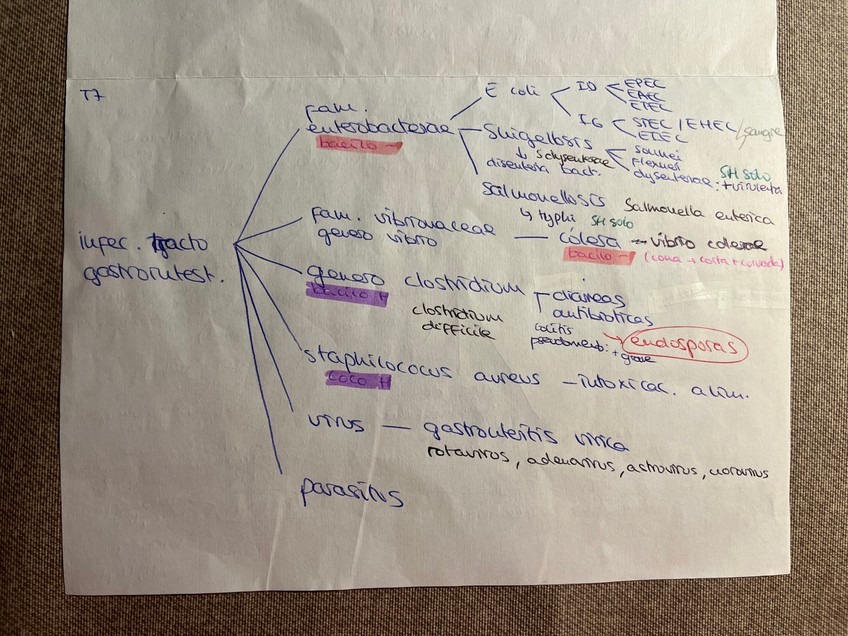 T7
infec. tracto
gastrointest.
fam.
enterobacterae
bacilo -
E coli
ID
EPEC
EAEC
ETEC
IG
STEC / EHEC / sangre
EIEC
Shigellosis
↓ s dysenterae
disenteria bact.
sonnei
flexneri
dysenterae: + virulenta
SH solo
Salmonellosis Salmonella enterica
↳ typhi SH solo
fam. vibrionaceae
genero vibrio
cólera → vibrio colerae
bacilo - (coma → corta + curvada)
genero clostridium
bacilo +
clostridium
difficile
diarreas
antibioticas
colitis
pseudomemb: + grave
→ endosporas
staphilococus aureus - intoxicac. alim.
coco +
virus - gastroenteritis virica
rotavirus, adenavirus, astrovirus, norovirus
parasitos